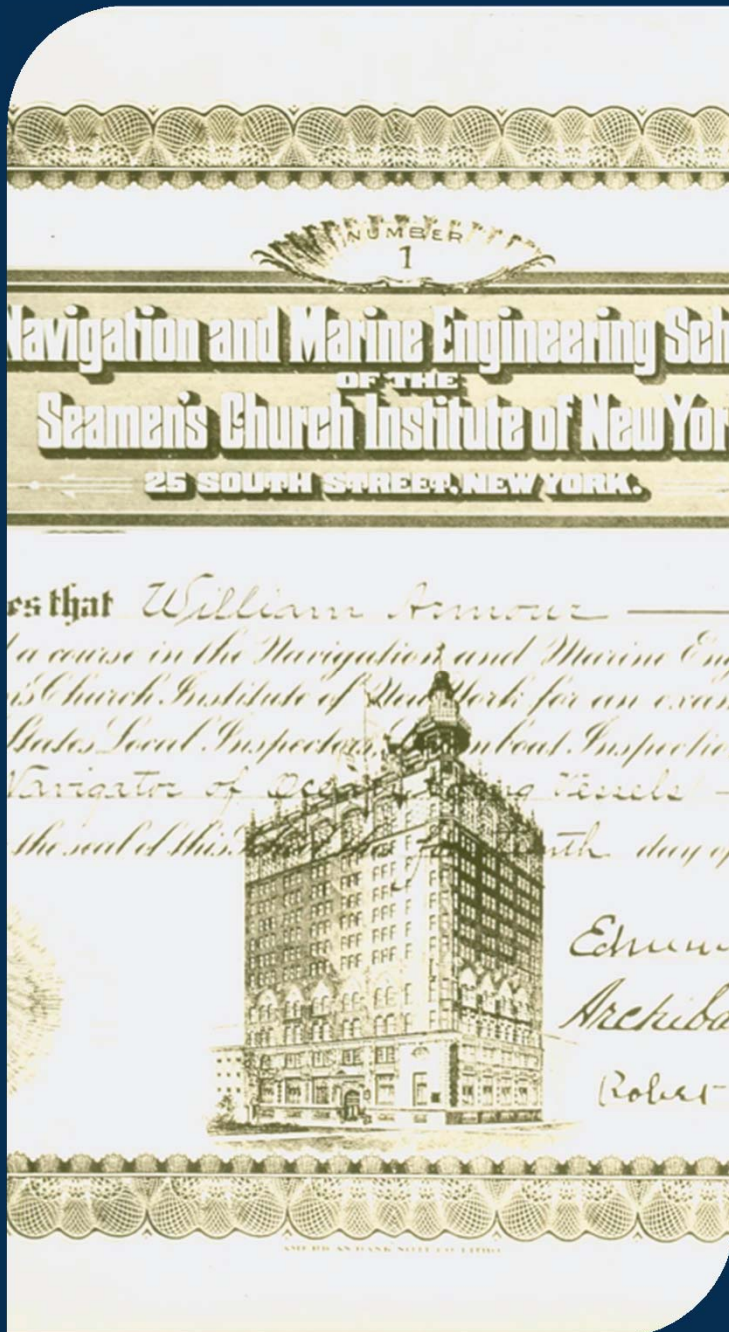 NUMBER
1
Navigation and Marine Engineering Sch
OF THE
Seamen's Church Institute of New Yor
25 SOUTH STREET, NEW YORK.
es that William Armour
a course in the Navigation and Marine Eng
's Church Institute of New York for an exam
States Local Inspectors, Steamboat Inspectio
Navigator of Ocean Going Vessels
the seal of this day of
Archiba
Robert
AMERICAN BANK NOTE CO. LITHO.